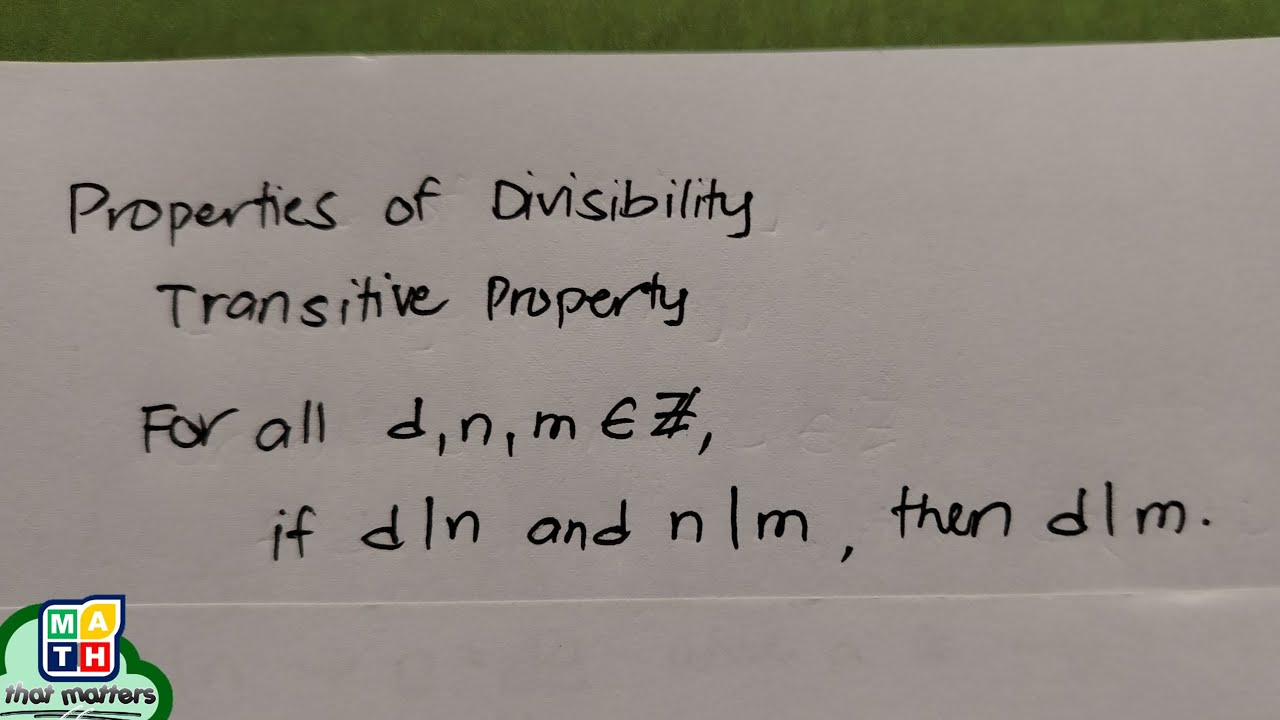 Properties of Divisibility
Transitive Property
For all d, n, m ∈ ℤ,
if d|n and n|m, then d|m.
MATH
that matters